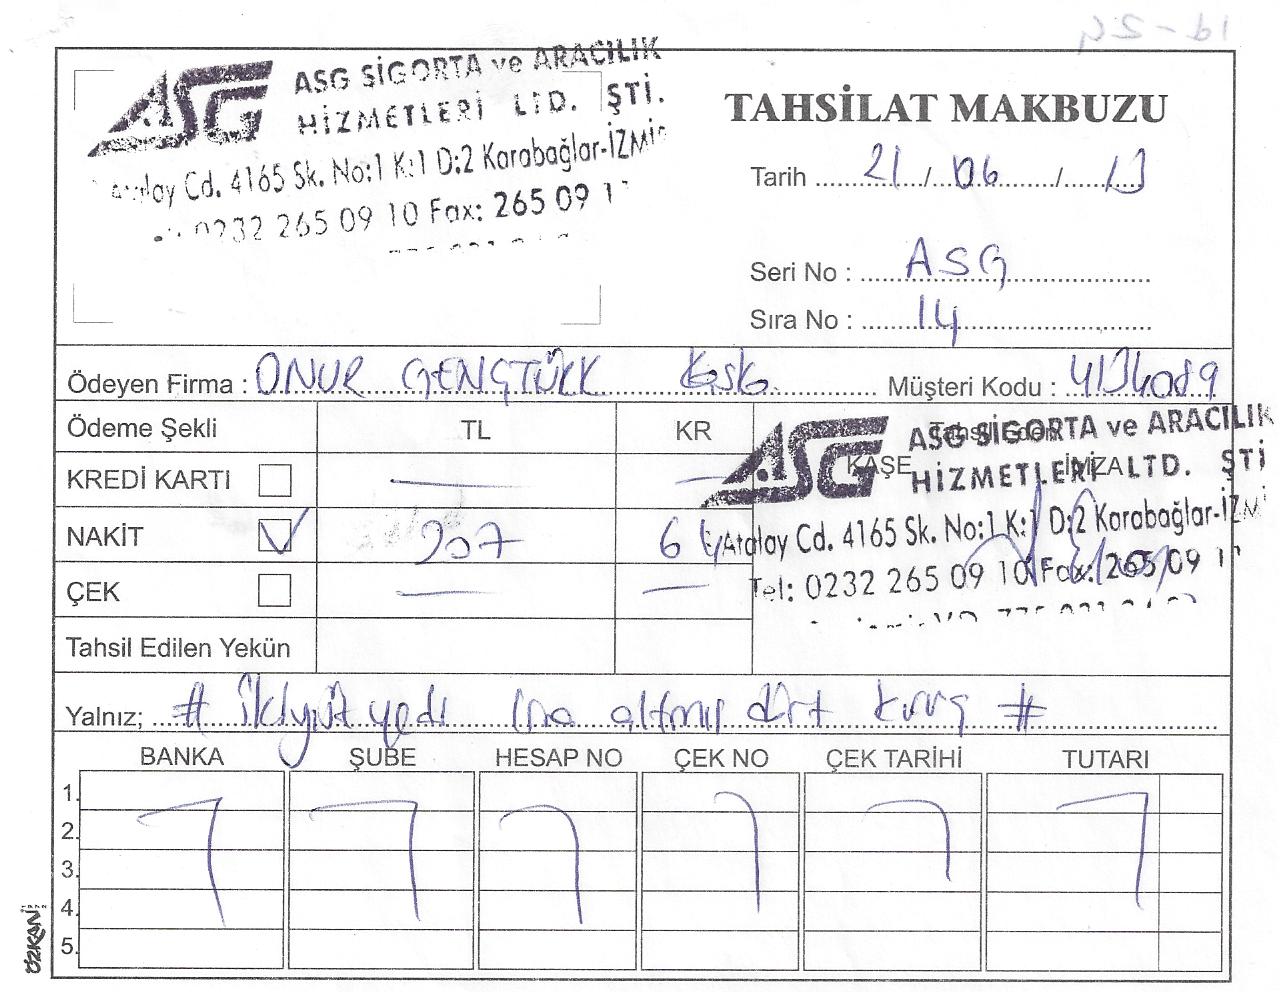 ASG SİGORTA ve ARACILIK
HİZMETLERİ LTD. ŞTİ.
Atalay Cd. 4165 Sk. No:1 K:1 D:2 Karabağlar-İZMİR
0232 265 09 10 Fax: 265 09 1
TAHSİLAT MAKBUZU
Tarih 21 / 06 / 13
Seri No : ASG
Sıra No : 14
Ödeyen Firma : ONUR GENÇTÜRK Müşteri Kodu :
Ödeme Şekli TL KR Tahsil Eden
KAŞE İMZA
KREDİ KARTI
NAKİT 207 64
ÇEK
Tahsil Edilen Yekün
ASG SİGORTA ve ARACILIK
HİZMETLERİ LTD. ŞTİ
Atalay Cd. 4165 Sk. No:1 K:1 D:2 Karabağlar-İZM
Tel: 0232 265 09 10 Fax: 265 09 1
Yalnız; # ikiyüz yedi lira altmış dört kuruş #
BANKA ŞUBE HESAP NO ÇEK NO ÇEK TARİHİ TUTARI
1.
2.
3.
4.
5.
ÖZKAN